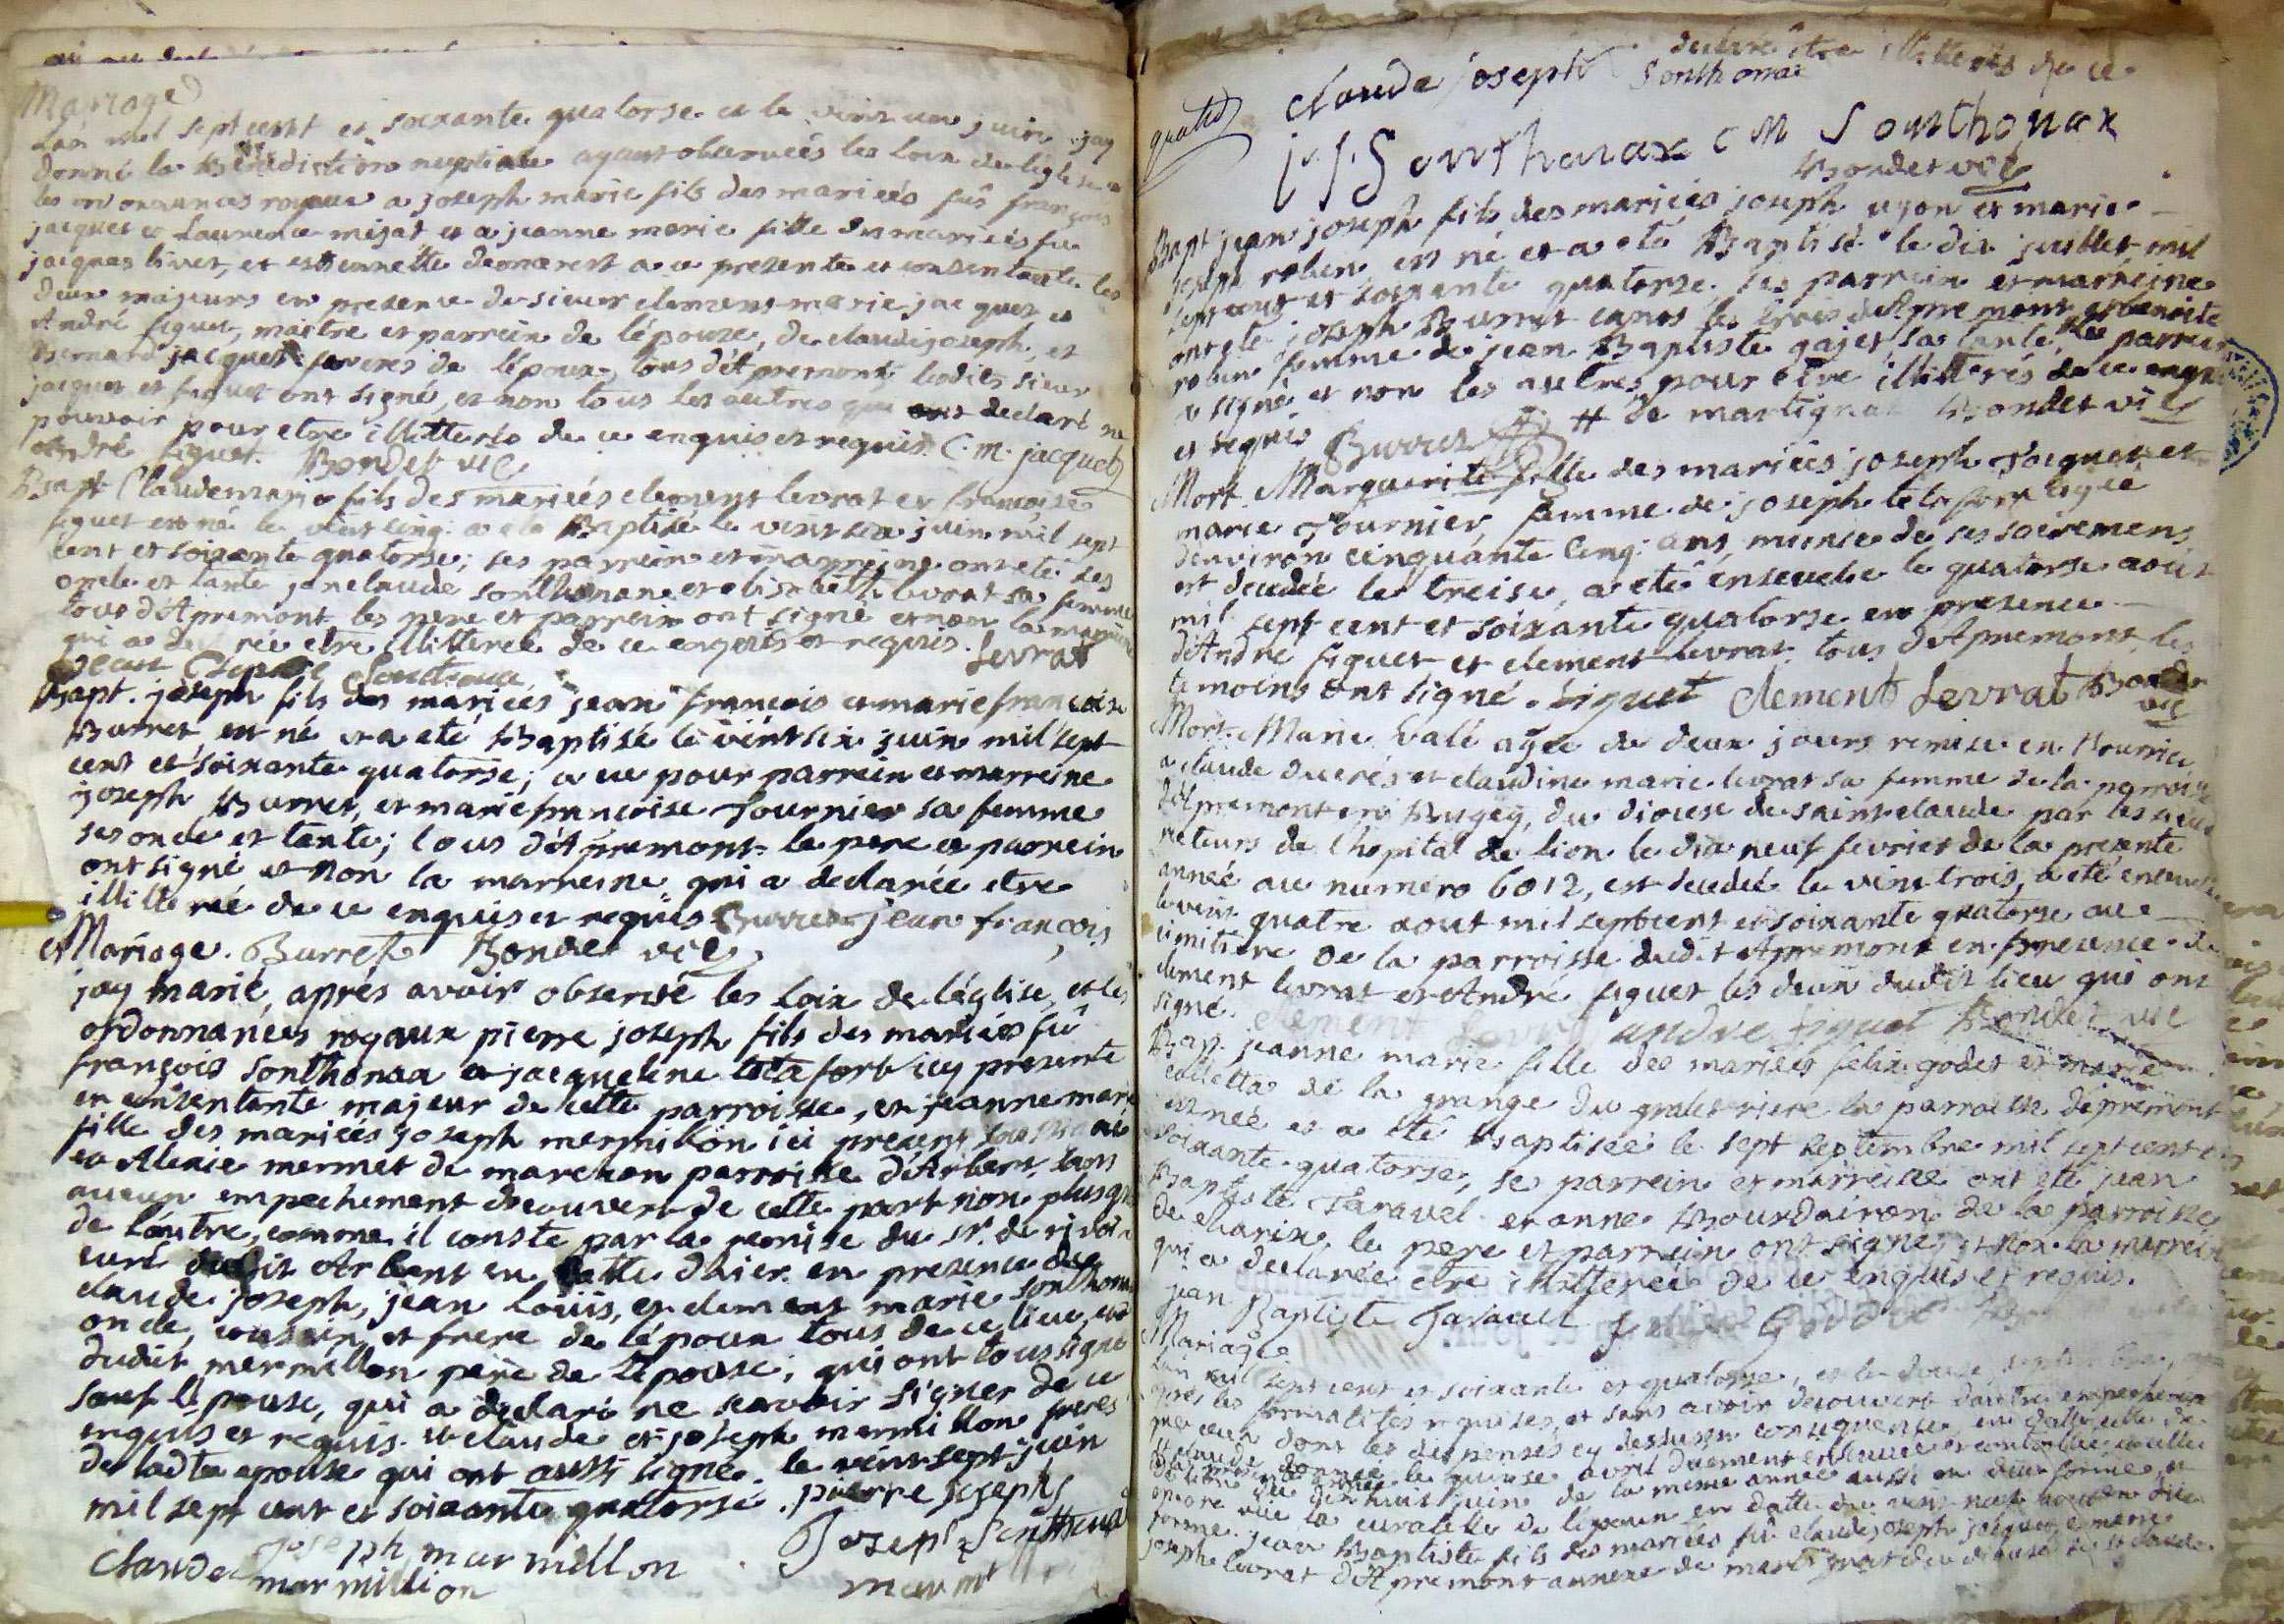 Mariage
Lan mil sept cent et soixante quatorse et le vint un juin jay
donné la Bénédiction nuptiale ayant observées les loix de léglise et
les ordonnances royaux a joseph marie fils des mariées fû françois
jacquet et Laurence mijat et a jeanne marie fille des mariées fu
jacques livet, et estiennette a ce presente et consentante les
deux majeurs en presence de sieur clement marie jacquet et
André figuet, maitre et parrein de lépouze, de claudejoseph, et
Bernard jacquet freres de lépoux, tous d'Apremont lesdits sieur
jacquet et figuet ont signé, et non tous les autres qui ont declaré ne
pouvoir pour etre illitterés de ce enquis et requis. C. m. jacquet
André figuet. Bondet vic
Bapt. Claudemarie fils des mariées clement levrat et françoise
figuet est né le vint cinq a ete Baptisé le vint six juin mil sept
cent et soixante quatorse; ses parrein et marreine ont eté ses
oncle et tante jan claude sonthonax et elisabeth levrat sa femme
tous d'Apremont les pere et parrein ont signé et non la marreine
qui a declarée etre illitterée de ce enquis et requis. Levrat
Bapt. joseph fils des mariées jean françois et marie françoise
Burret est né et a eté Baptisé le vint six juin mil sept
cent et soixante quatorse; a eu pour parrein et marreine
joseph Burret, et marie françoise fournier sa femme
ses oncle et tante; tous d'Apremont le pere et parrein
ont signé et non la marreine qui a declarée etre
illitterée de ce enquis et requis Burret jean françois
Mariage. Burret Bondet vic
jay marié, aprés avoir observé les loix de léglise, et les
ordonnances royaux pierre joseph fils des mariées fû
françois sonthonax et jacqueline lelafort icy presente
et consentante majeur de cette parroisse, et jeanne marie
fille des mariées joseph mermillon ici present
et Alexie mermet de marchon parroisse d'Arbent, sans
aucun empechement decouvert de cette part non plus que
de lautre, comme il conste par la remise du sr. de
curé dudit Arbent en datte dhier en presence de
claude joseph, jean loüis, et clement marie sonthonax
oncle, cousin, et frere de lépoux tous de ce lieu, et
dudit mermillon pere de lépouse; qui ont tous signé
sauf lépouse, qui a declaré ne scavoir signer de ce
enquis et requis. et claude et joseph mermillon freres
de ladte epouse qui ont aussi signé. le vint sept juin
mil sept cent et soixante quatorse. pierre joseph
joseph mar millon Joseph Sonthonax
claude mar million
claude joseph Sonthonax illitterés de ce
j. j. Sonthonax C M Sonthonax
Bondet vic
Bapt jean joseph fils des mariées joseph ugon et marie
joseph robin est né et a eté Baptisé le dix juillet mil
sept cent et soixante quatorse, ses parrein et marreine
ont eté joseph Burret d'Apremont et benoite
robin femme de jean Baptiste gajet, sa tante # le parrein
a signé et non les autres, pour être illitterés de ce enquis
et requis Burret # de martignat Bondet vic
Mort. Marguerite fille des mariées joseph Jacquet et
marie fournier, femme de joseph lelafort agée
d'environ cinquante cinq ans, munie de ses sacremens
est decedée le treise, a eté ensevelie le quatorse aout
mil sept cent et soixante quatorse en presence
d'André figuet et clement levrat tous d'Apremont, les
temoins ont signé. figuet clement Levrat Bondet
vic
Mort. Marie valé agée de deux jours remise en Nourrice
a claude ducrés et claudine marie levrat sa femme de la parroisse
d'Apremont en Bugey, du diocese de saint claude par les
recteurs de lhopital de lion le dix neuf fevrier de la presente
année au numero 6012, est decedée le vint trois, a eté ensevelie
le vint quatre aout mil sept cent et soixante quatorse au
cimitiere de la parroisse dudit Apremont en presence de
clement levrat et André figuet les deux dudit lieu qui ont
signé. clement Levrat andré figuet Bondet vic
Bap. jeanne marie fille des mariées felix godet et marie
colletta de la grange du riere la parroisse d'apremont
est née et a eté Baptisée le sept septembre mil sept cent et
soixante quatorse, se parrein et marreine ont eté jean
Baptiste Taravel et anne Bourdairon de la parroisse
de charix, le pere et parrein ont signé, et non la marreine
qui a declarée etre illitterée de ce enquis et requis.
jean Baptiste Taravel felix Goddet
Mariage
Lan mil sept cent et soixante et quatorse, et le douse septembre,
aprés les formalités requises, et sans avoir decouvert dautre empechemen
que ceux dont les dispenses cy dessus en consequence, en datte celle de
St claude donnée le quinse avril duement et controllée, et celle
du dix huit juin de la meme année aussi en düe forme, et
encore vue la curatelle de lepoux en datte du vint neuf en düe
forme. jean Baptiste fils des mariées fû claude joseph jacquet, et marie
josephe levrat d'Apremont annexe de martignat du diocese de st claude